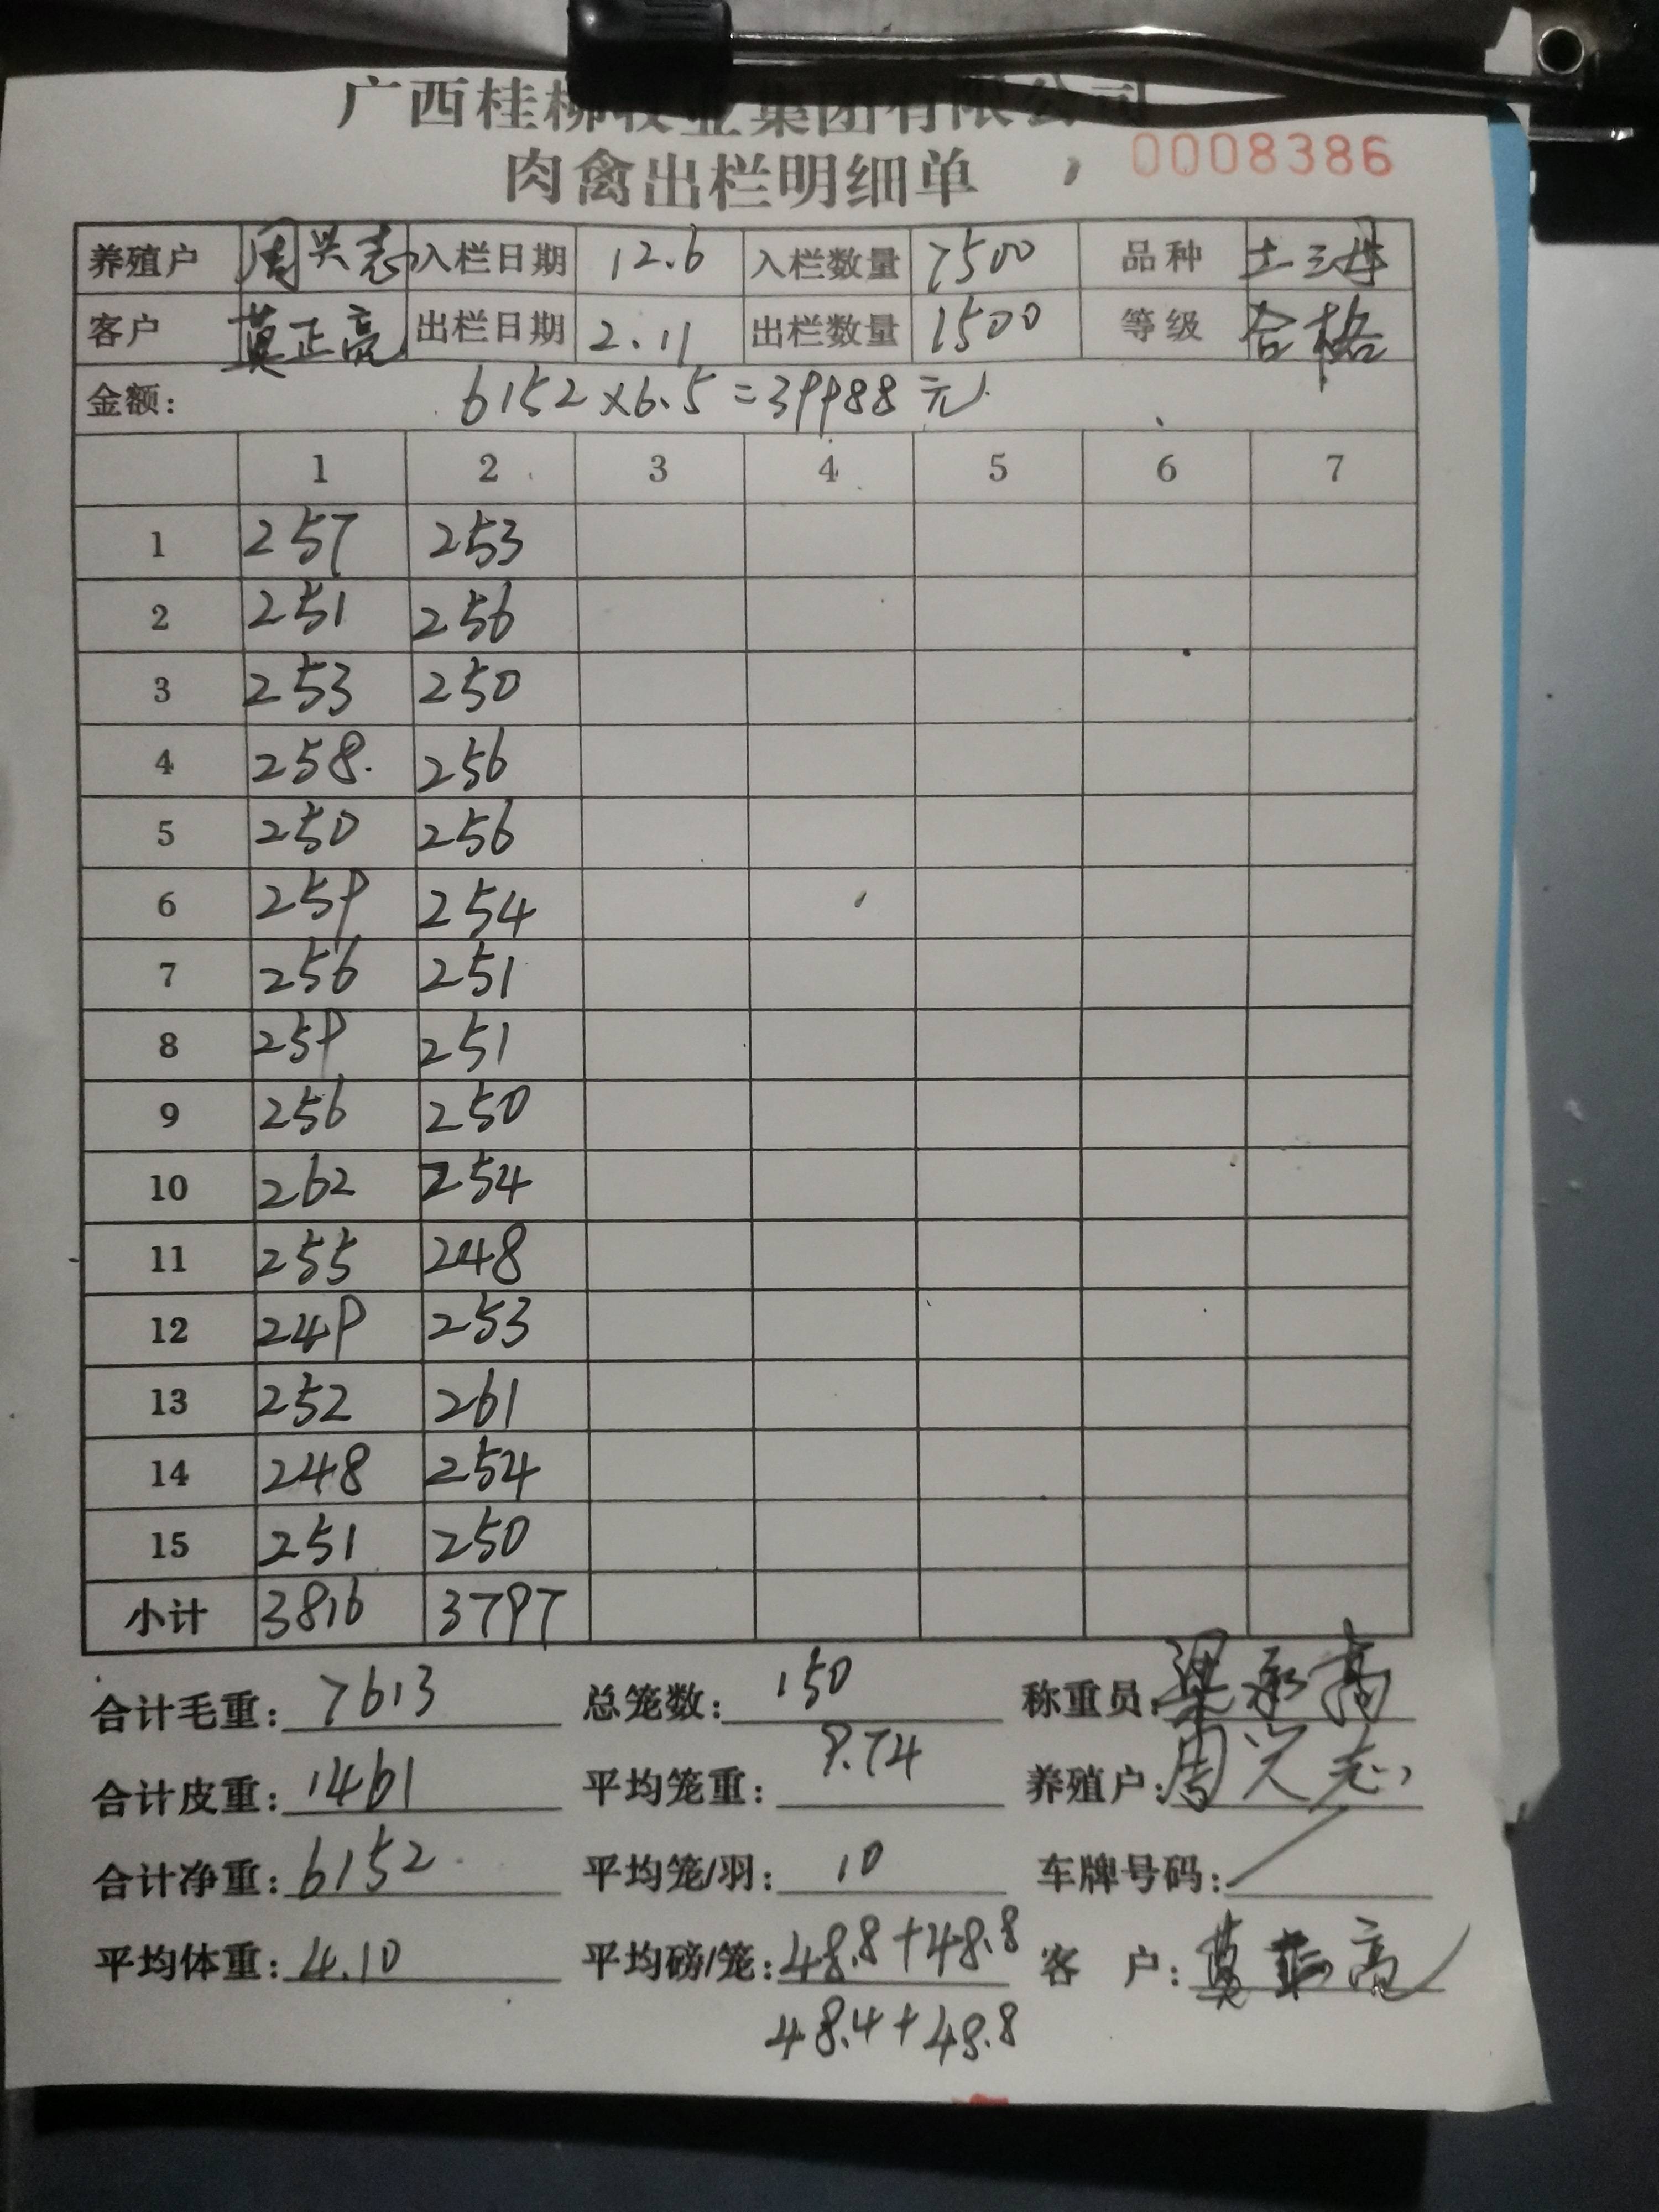 广西桂柳牧业集团有限公司
肉禽出栏明细单 0008386
养殖户 周兴志 入栏日期 12.6 入栏数量 7500 品种
客户 莫正亮 出栏日期 2.11 出栏数量 1500 等级 合格
金额: 6152×6.5=39988元
1 2 3 4 5 6 7
1 257 253
2 251 256
3 253 250
4 258. 256
5 250 256
6 259 254
7 256 251
8 259 251
9 256 250
10 262 254
11 255 248
12 249 253
13 252 261
14 248 254
15 251 250
小计 3816 3797
合计毛重: 7613 总笼数: 150 称重员:
合计皮重: 1461 平均笼重: 9.74 养殖户: 周兴志
合计净重: 6152 平均笼/羽: 10 车牌号码:
平均体重: 4.10 平均磅/笼: 48.8+48.8 客 户:
48.4+48.8